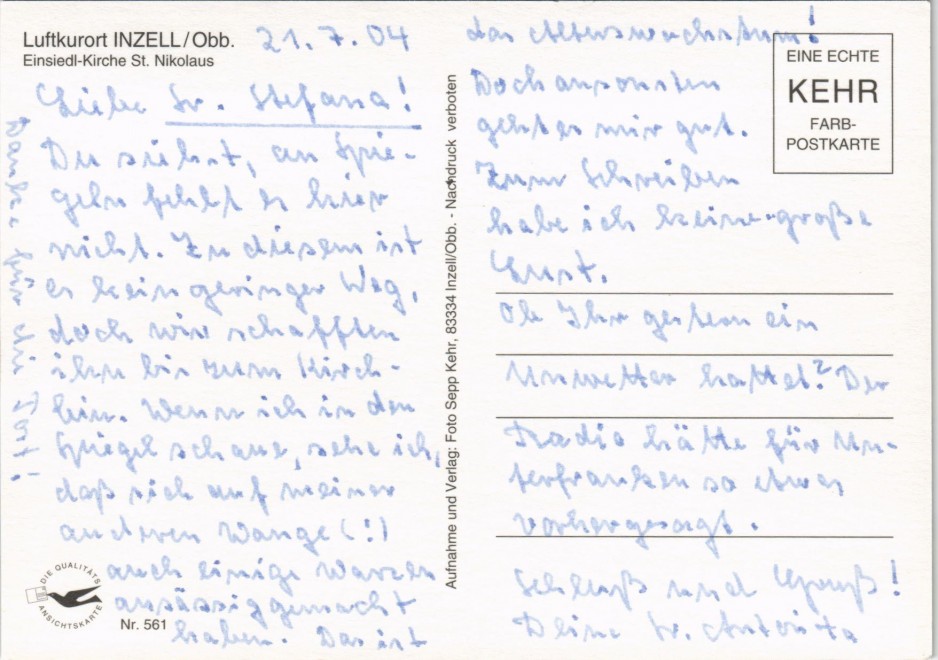 Luftkurort INZELL/Obb.
Einsiedl-Kirche St. Nikolaus
21.7.04
Liebe Sr. Stefana!
Du siehst, an Spie-
geln fehlt es hier
nicht. Zu diesem ist
es kein geringer Weg,
doch wir schafften
ihn bis zum Kirch-
lein. Wenn ich in den
Spiegel schaue, sehe ich,
daß sich auf meiner
anderen Wange (!)
auch einige Warzen
ansässig gemacht
haben. Das ist
das Alterswachstum!
Doch ansonsten
geht es mir gut.
Zum Schreiben
habe ich keine große
Lust.
Ob Ihr gestern ein
Unwetter hattet? Der
Radio hätte für Un-
terfranken so etwas
vorhergesagt.
Schluß und Gruß!
Deine Sr.
Danke für die
Aufnahme und Verlag: Foto Sepp Kehr, 83334 Inzell/Obb. - Nachdruck verboten
EINE ECHTE
KEHR
FARB-
POSTKARTE
DIE QUALITÄTS
ANSICHTSKARTE
Nr. 561